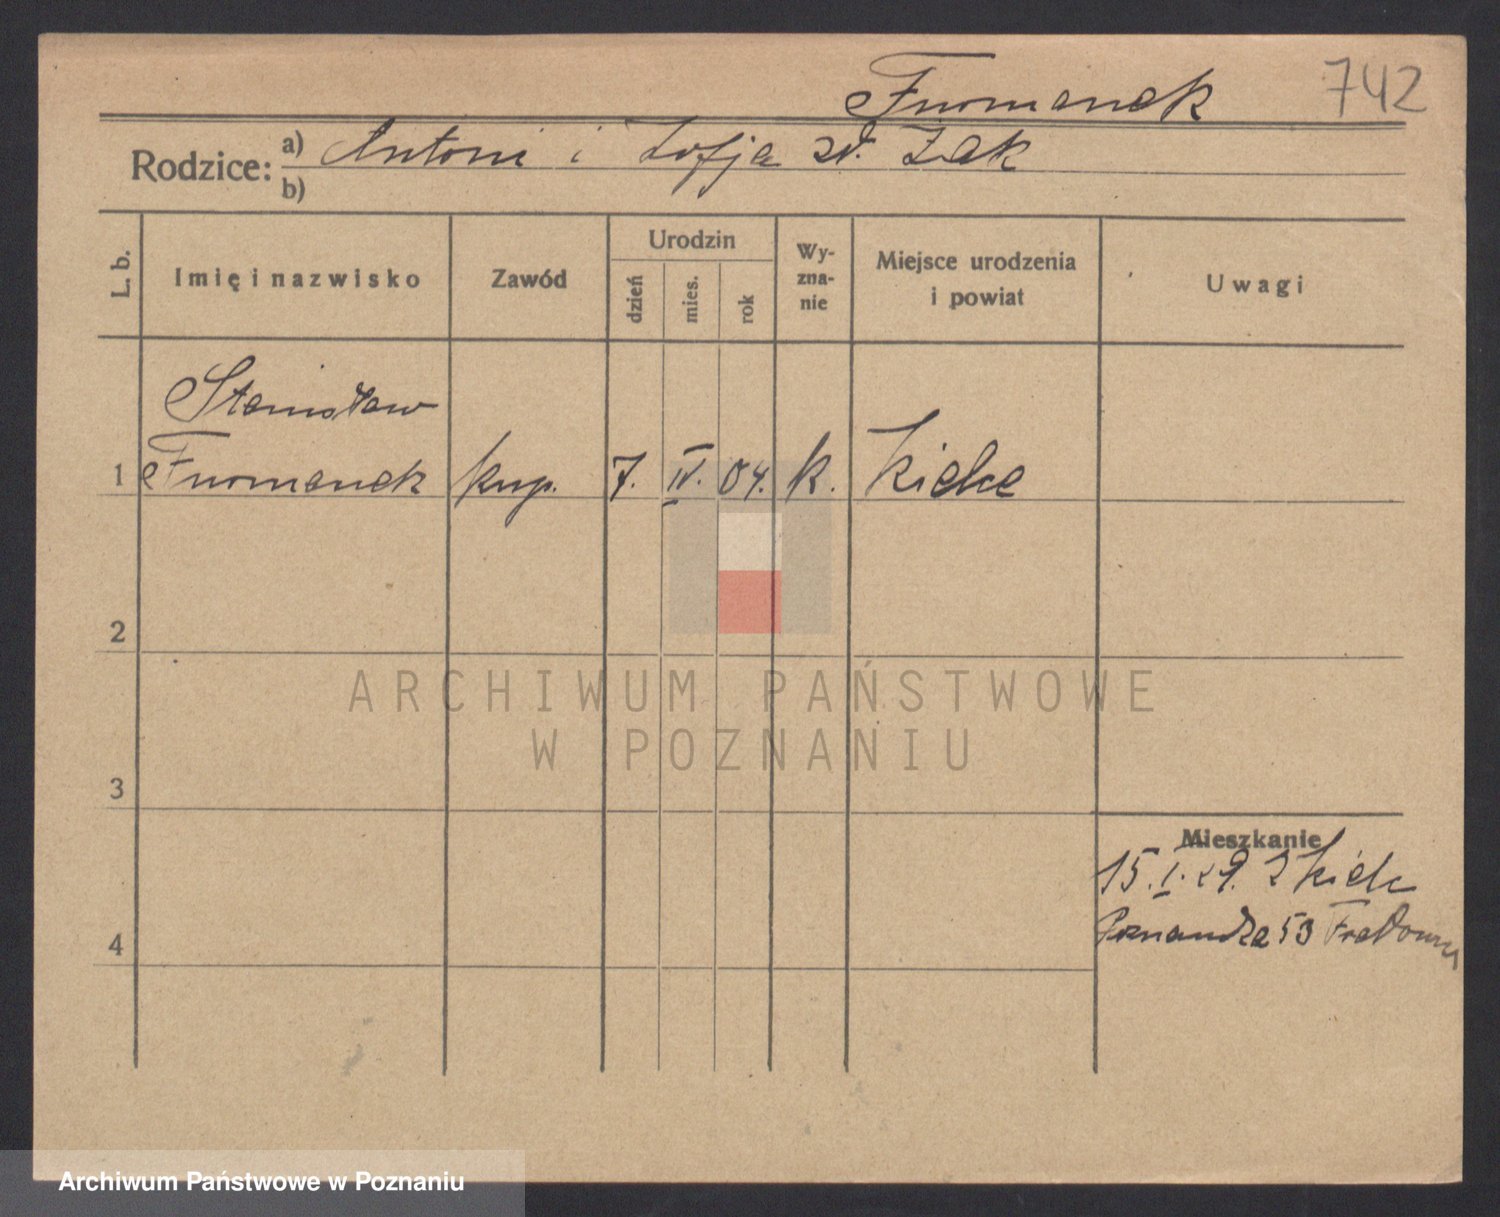 Furmanek 742
Rodzice: a) Antoni i Zofja zd. Żak
b)
L. b. Imię i nazwisko Zawód Urodzin dzień mies. rok Wy-zna-nie Miejsce urodzenia i powiat Uwagi
Stanisław
1 Furmanek kup. 7. IV. 04. k. Kielce
2
3
Mieszkanie
15. I. 29. z Kielc
4 Poznańska 53
ARCHIWUM PAŃSTWOWE
W POZNANIU
Archiwum Państwowe w Poznaniu